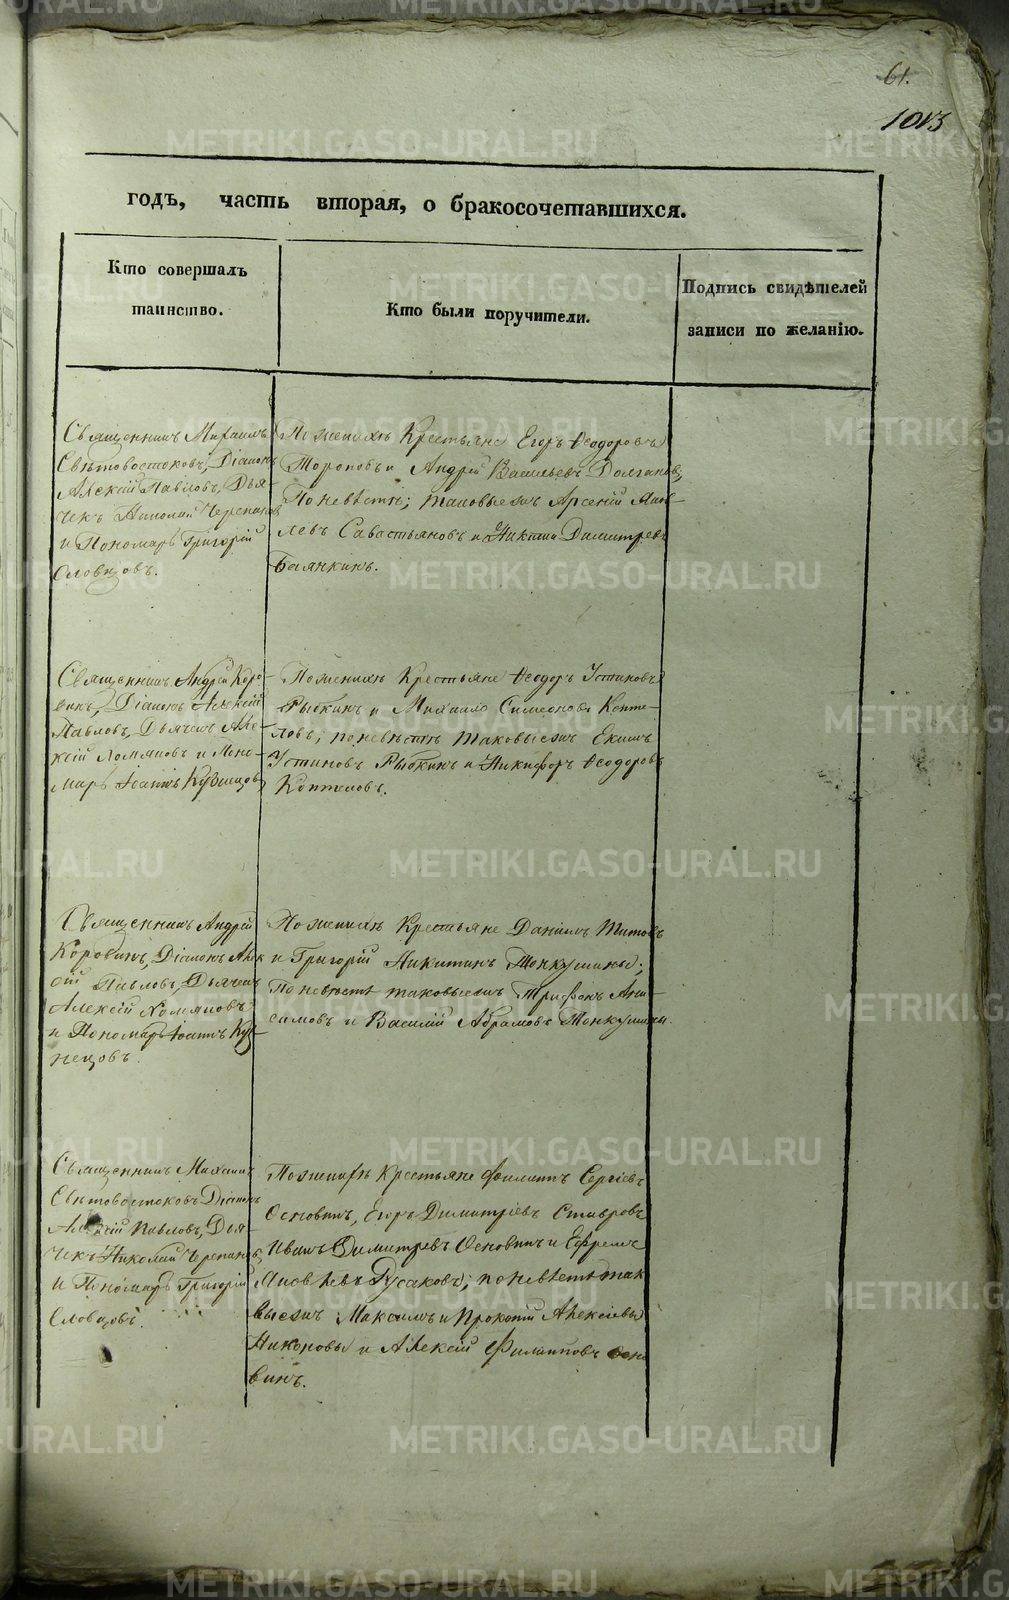 61.
1013
годъ, часть вторая, о бракосочетавшихся.
Кто совершалъ
таинство.
Кто были поручители.
Подпись свидѣтелей
записи по желанію.
Священникъ Михаилъ
Свѣтовостоковъ, Діаконъ
Алексій Павловъ, Дья-
чекъ Николай Черепановъ
и Пономарь Григорій
Словцовъ.
По женихѣ Крестьяне Егоръ Ѳеодоровъ
Тороповъ и Андрей Васильевъ Долгановъ,
По невѣстѣ; таковыежъ Арсеній
левъ Савастьяновъ и Никита Димитревъ
Баянкинъ.
Священникъ Андрей Коро-
винъ, Діаконъ Алексій
Павловъ, Дьячекъ Але-
ксій Хомяковъ и Поно-
марь Іоаннъ Кузнецовъ
По женихѣ Крестьяне Ѳеодоръ Устиновъ
Рыбкинъ и Михайло Симеоновъ Копте-
ловъ, по невѣстѣ таковыежъ Екимъ
Устиновъ Рыбкинъ и Никифоръ Ѳеодоровъ
Коптеловъ.
Священникъ Андрей
Коровинъ, Діаконъ Алек
сій Павловъ, Дьячекъ
Алексій Хомяковъ
и Пономарь Іоаннъ Куз-
нецовъ.
По женихѣ Крестьяне Даніилъ Титовъ
и Григорій Никитинъ Тонкушины;
По невѣстѣ таковыежъ Трифонъ Ани-
симовъ и Василій Абрамовъ Тонкушины.
Священникъ Михаилъ
Свѣтовостоковъ Діаконъ
Алексій Павловъ, Дья-
чекъ Николай Черепановъ,
и Пономарь Григорій
Словцовъ.
По женихѣ Крестьяне Филиппъ Сергіевъ
Осковинъ, Егоръ Димитріевъ Ставровъ
Иванъ Димитревъ Осковинъ и Ефремъ
Яковлевъ Гусаковъ; по невѣстѣ так
выежъ Максимъ и Прокопій Алексіевы
Никоновы и Алексій Филипповъ Оско
винъ.
METRIKI.GASO-URAL.RU